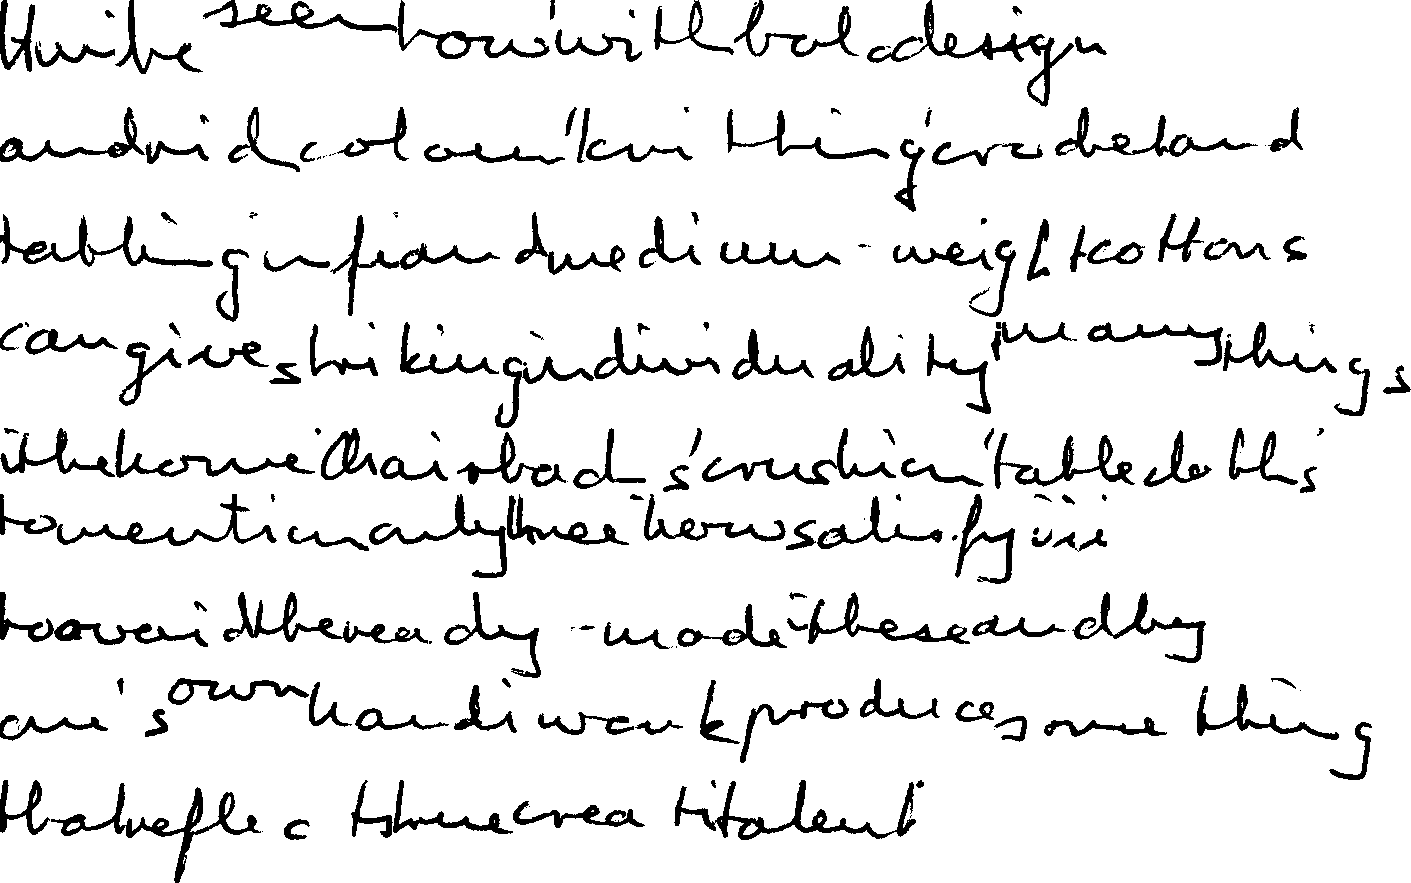 It will be seen how, with bold design
and rich colour, knitting, crochet and
tatting in fine and medium-weight cottons
can give striking individuality many things
in the home. Chairbacks, cushion, tablecloths
to mention only three. How satisfying
to avoid the ready-made in these and by
one's own handiwork produce something
that reflects true creative talent.